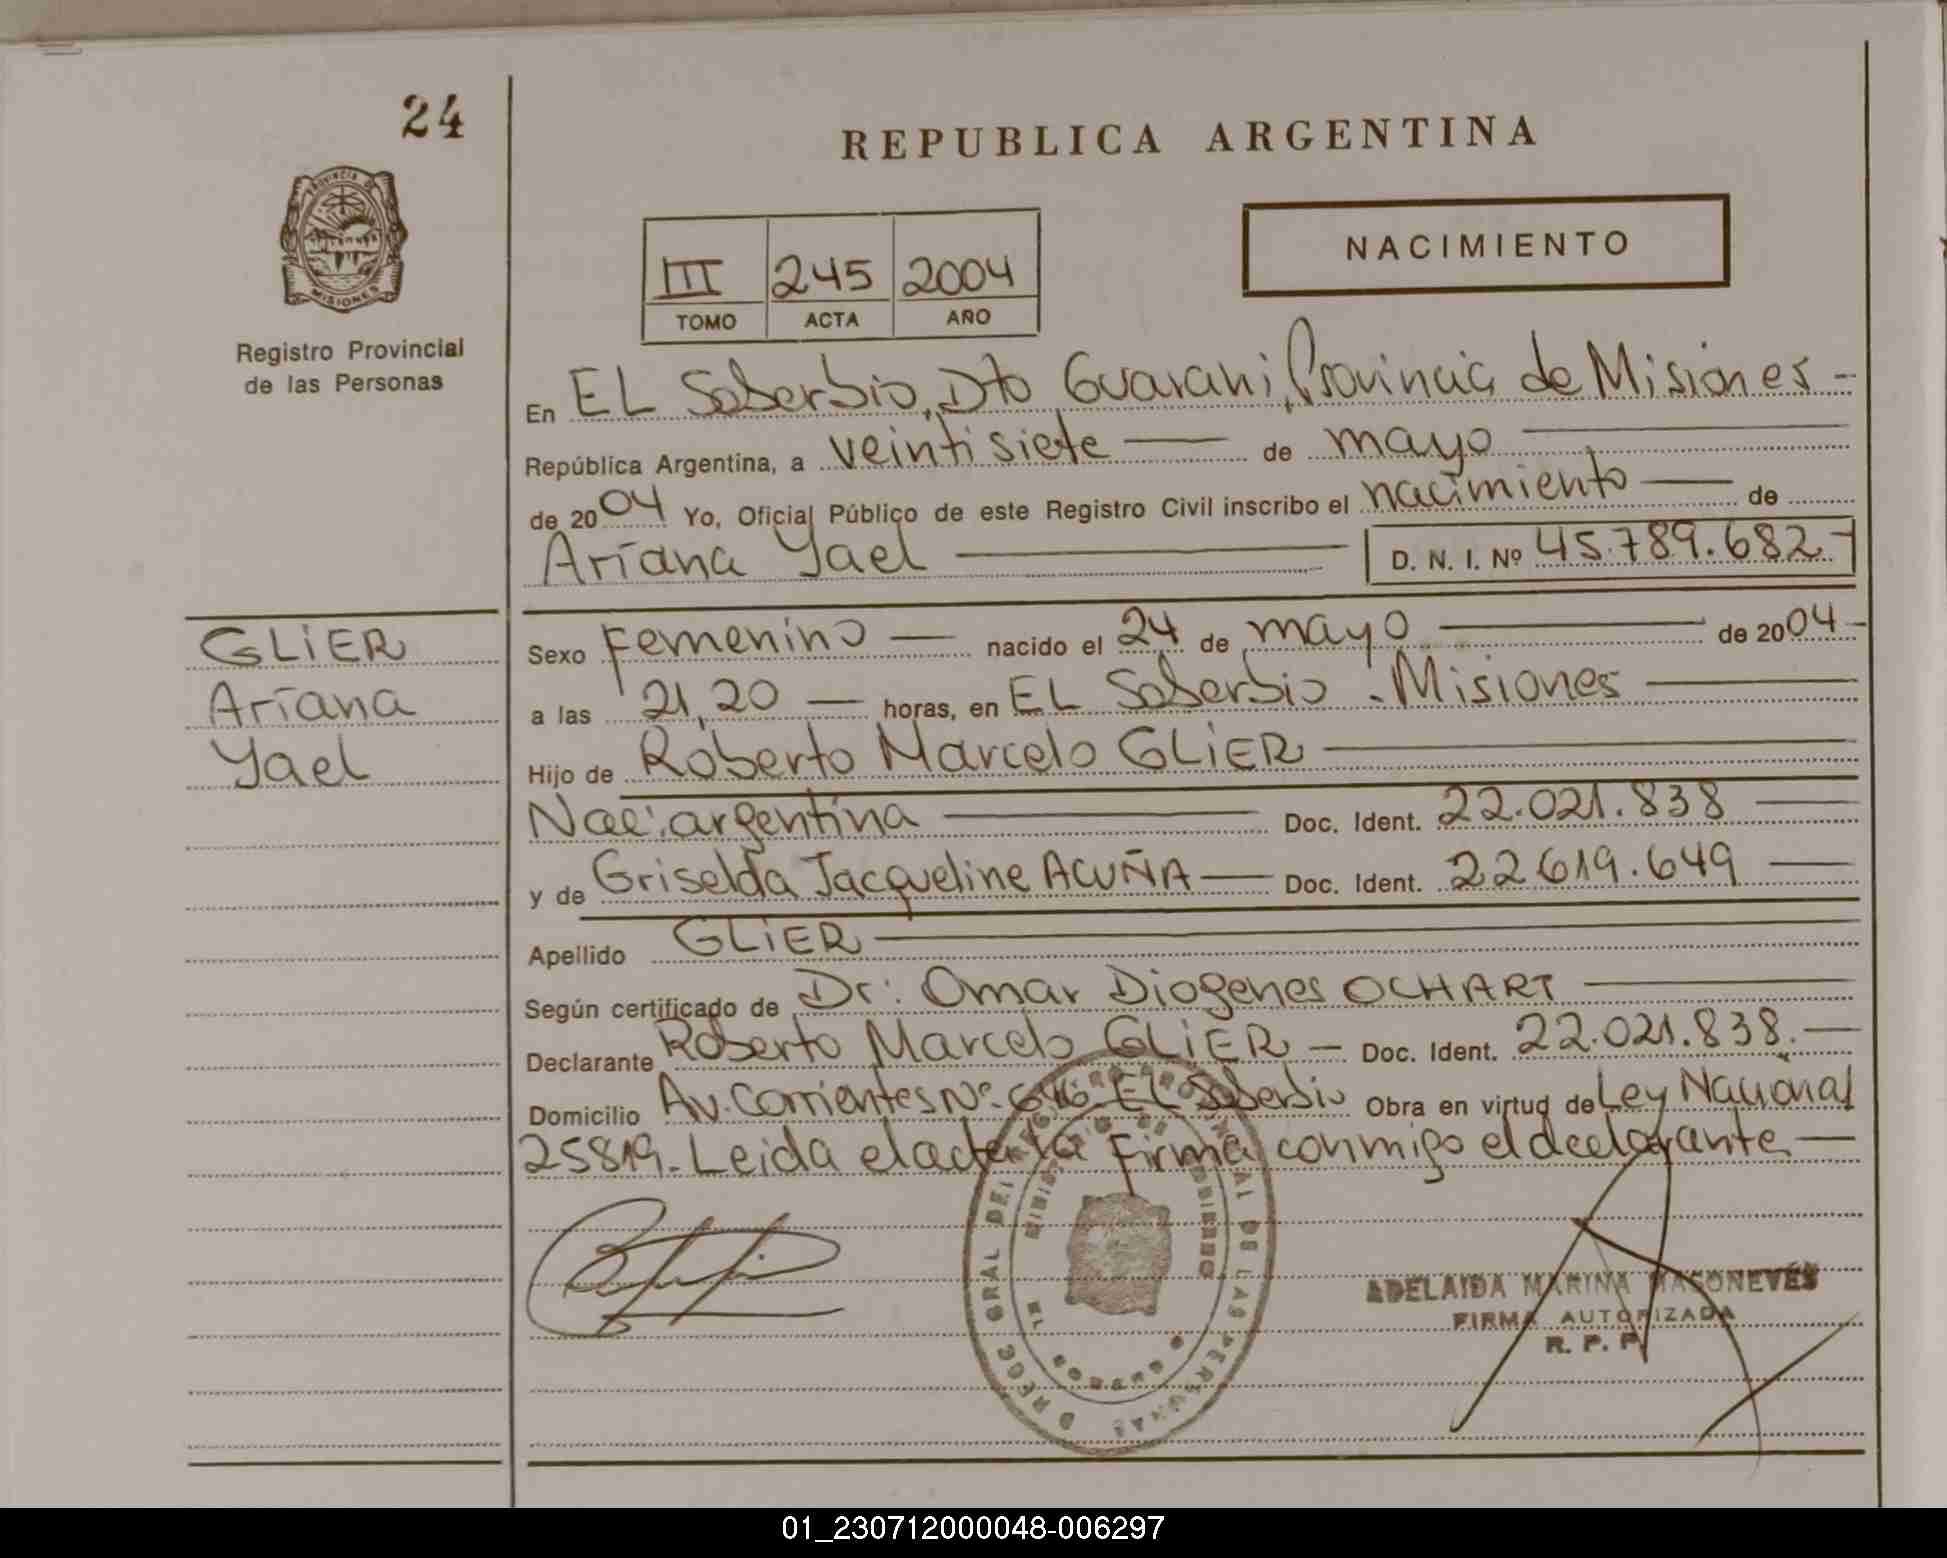 24
PROVINCIA DE
MISIONES
Registro Provincial
de las Personas
REPUBLICA ARGENTINA
NACIMIENTO
III 245 2004
TOMO ACTA AÑO
En EL Soberbio, Dto Guarani, Provincia de Misiones -
República Argentina, a veintisiete de mayo
de 2004 Yo, Oficial Público de este Registro Civil inscribo el nacimiento de
Ariana Yael D. N. I. Nº 45.789.682-
GLIER
Ariana
Yael
Sexo Femenino nacido el 24 de mayo de 2004-
a las 21,20 horas, en EL Soberbio - Misiones
Hijo de Roberto Marcelo GLIER
Nac. argentina Doc. Ident. 22.021.838
y de Griselda Jacqueline ACUÑA Doc. Ident. 22.619.649
Apellido GLIER
Según certificado de Dr. Omar Diogenes OCHART
Declarante Roberto Marcelo GLIER - Doc. Ident. 22.021.838.
Domicilio Av. Corrientes Nº EL Soberbio Obra en virtud de Ley Nacional
25819. Leida el acta la Firma conmigo el declarante
GRAL DEL DE LAS PERSONAS
ADELAIDA MARINA
FIRMA AUTORIZADA
R. P. P.
01_230712000048-006297